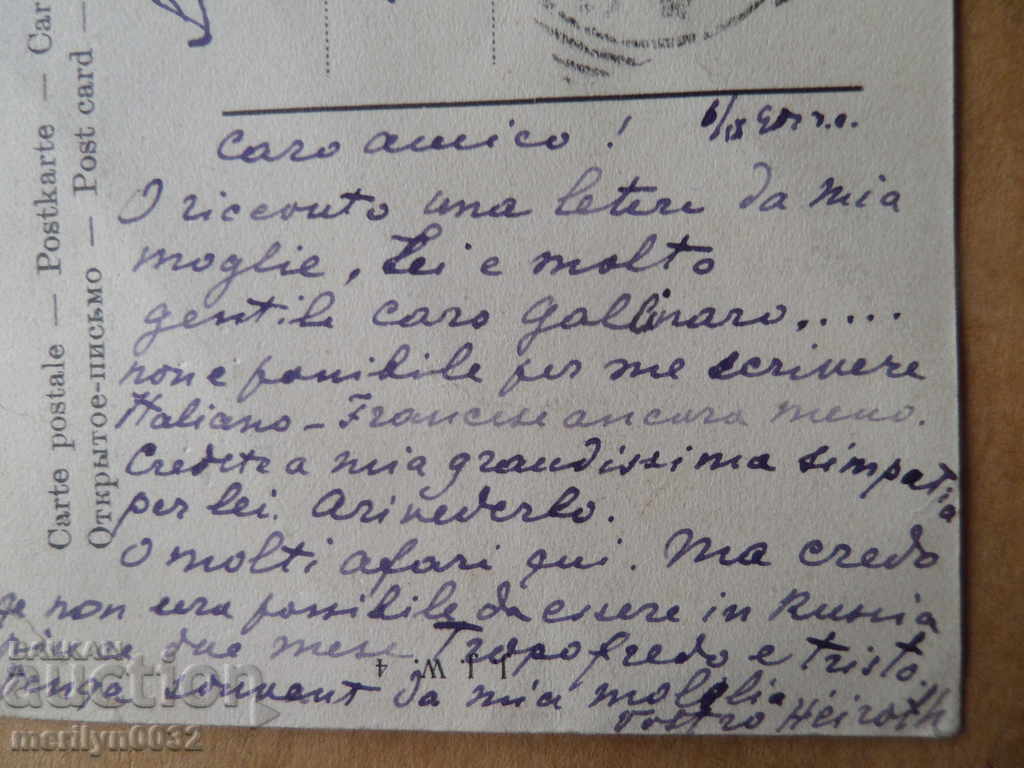 Carte postale — Postkarte — Car
Открытое-письмо — Post card —
Caro amico!
O ricconto una letere da mia
moglie, Lei e molto
gentile caro Gallinaro.....
non e ponibile per me scrivere
Italiano - Francese ancora meno.
Credete a mia grandissima simpatia
per lei. Arivederlo.
O molti afari qui. Ma credo
non sera possibile da essere in Russia
due mese Tropo fredo e tristo.
souvent da mia moglia
vostro Heiroth
BALKAN
auction
merilyn0032